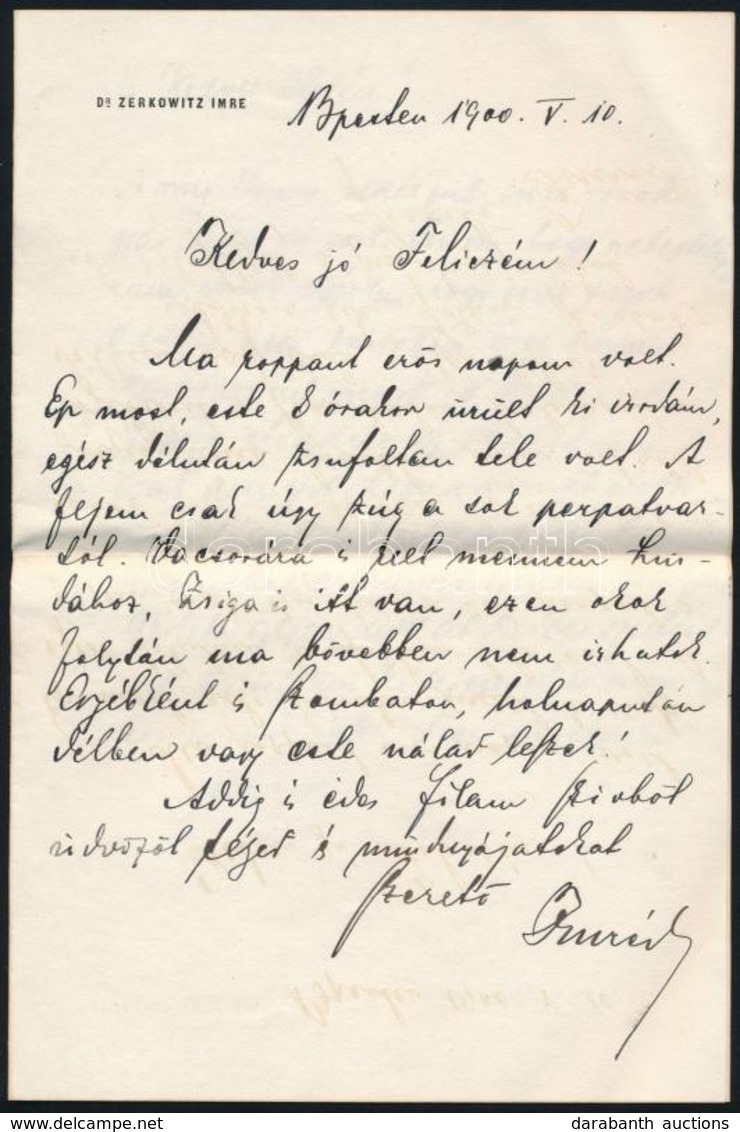 DR ZERKOWITZ IMRE
Bpesten 1900. V. 10.
Kedves jó Feliczém!
Ma roppant erős napom volt.
Ép most, este 8 órakor ürült ki irodám,
egész délután zsufoltam tele volt. A
fejem csak úgy zúg a sok perpatvar-
tól. Vacsorára is kell mennem Lin-
dához, Zsiga is itt van, ezen okok
folytán ma bővebben nem irhatok.
Egyébként is Szombaton, holnapután
délben vagy este nálad leszek!
Addig is édes Filam szivből
üdvözöl téged és mindnyájatokat
szerető
Imréd
darabanth
darabanth auctions